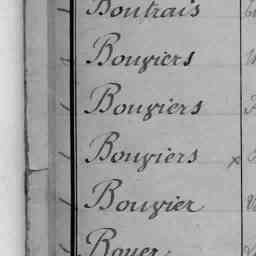 Boutrais
Bouviers
Bouviers
Bouviers x
Bouvier
Boyer